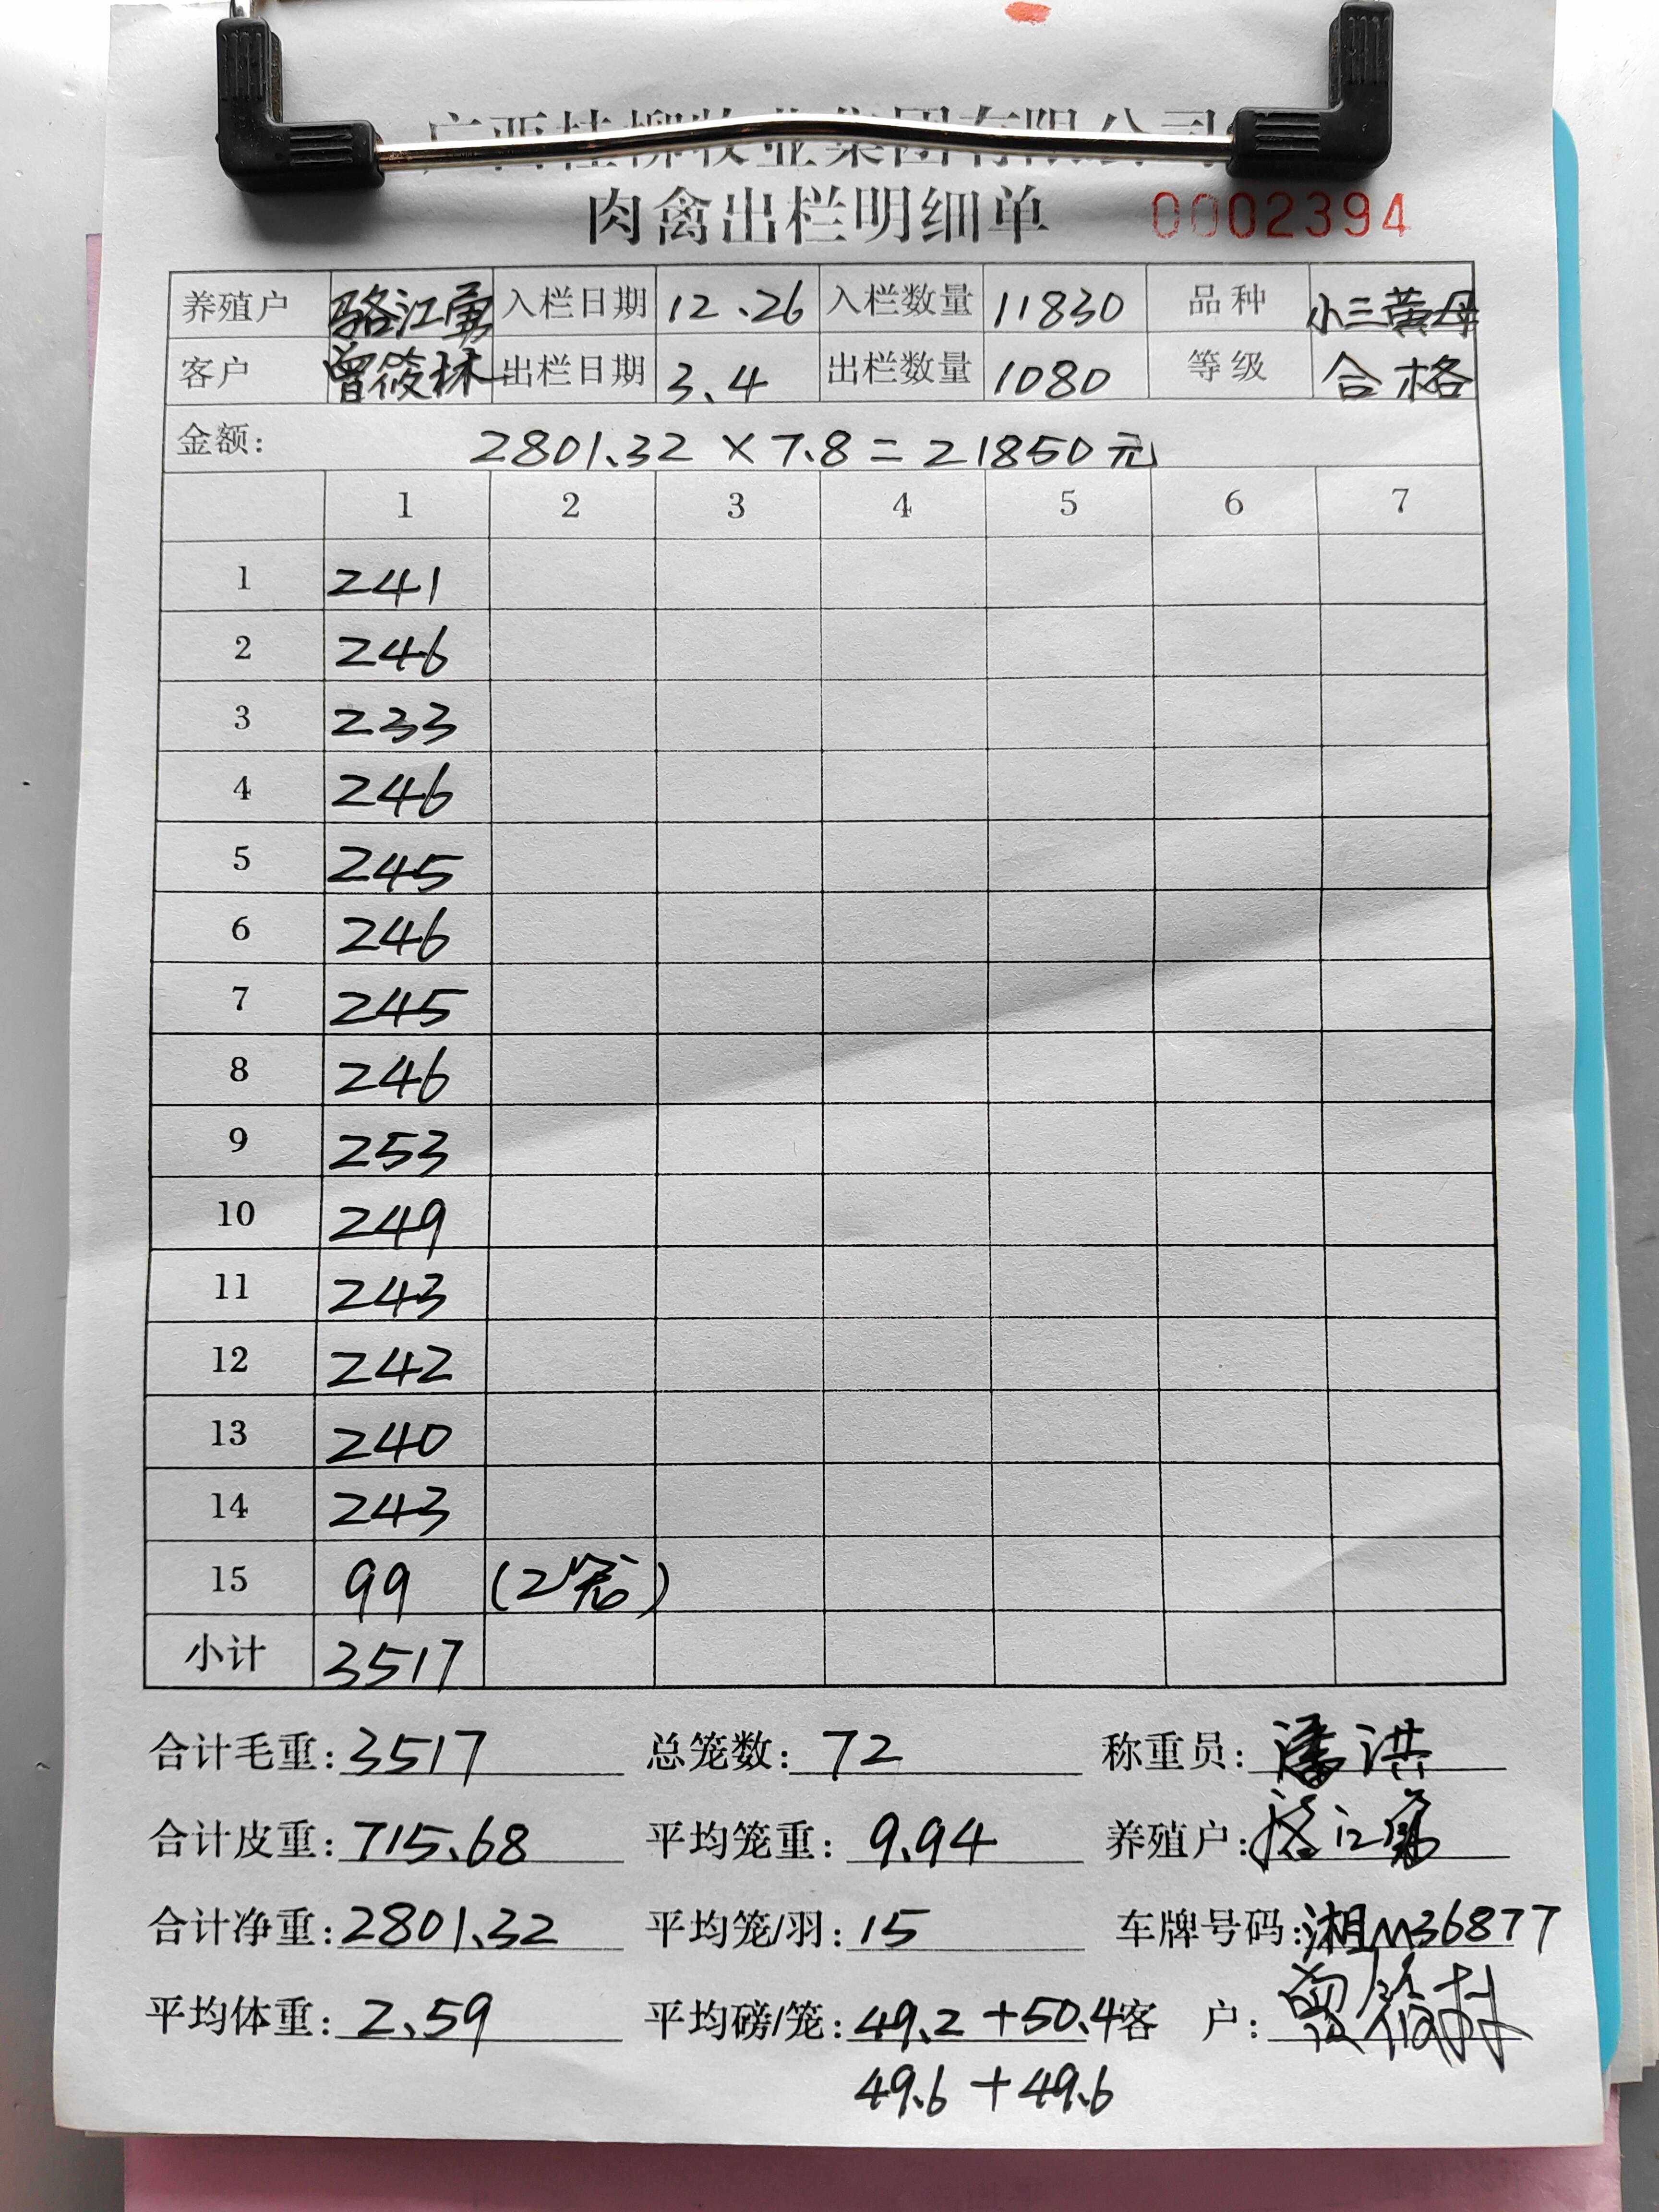 广西桂柳牧业集团有限公司
肉禽出栏明细单 0002394
养殖户 骆江勇 入栏日期 12.26 入栏数量 11830 品种 小三黄母
客户 曾筱林 出栏日期 3.4 出栏数量 1080 等级 合格
金额: 2801.32×7.8=21850元
1 2 3 4 5 6 7
1 241
2 246
3 233
4 246
5 245
6 246
7 245
8 246
9 253
10 249
11 243
12 242
13 240
14 243
15 99 (2笼)
小计 3517
合计毛重: 3517 总笼数: 72 称重员: 潘洪
合计皮重: 715.68 平均笼重: 9.94 养殖户: 骆江勇
合计净重: 2801.32 平均笼/羽: 15 车牌号码: 湘M36877
平均体重: 2.59 平均磅/笼: 49.2+50.4 客 户: 曾筱林
49.6+49.6